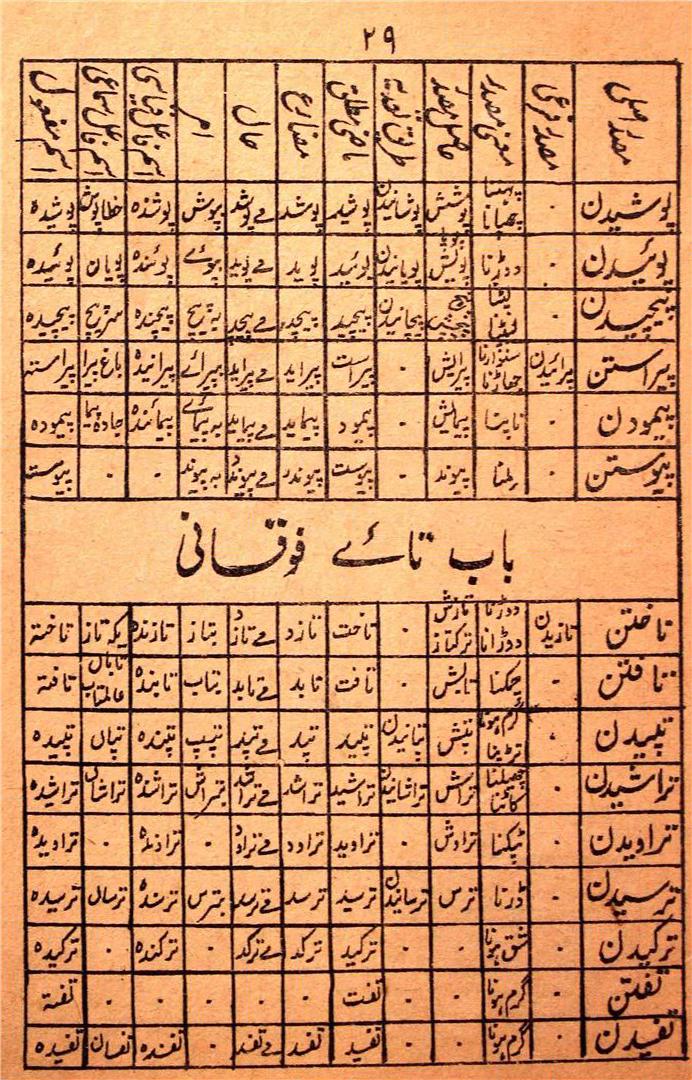 ۲۹
مصدر اصلی | مصدر فرعی | معنی مصدر | حاصل مصدر | طریق تعدیہ | ماضی مطلق | مضارع | حال | امر | اسم فاعل قیاسی | اسم فاعل سماعی | اسم مفعول
پوشیدن | ۰ | پہننا چھپانا | پوشش | پوشانیدن | پوشید | پوشد | مے پوشد | پوش | پوشندہ | خطاپوش | پوشیدہ
پوئیدن | ۰ | دوڑنا | پویش | پویانیدن | پوئید | پوید | مے پوید | پوے | پوئندہ | پویان | پوئیدہ
پیچیدن | ۰ | لپٹنا | پیچش | پیچانیدن | پیچید | پیچد | مے پیچد | بہ پیچ | پیچندہ | سرپیچ | پیچیدہ
پیراستن | پیرائیدن | سنوارنا چھانٹنا | پیرایش | ۰ | پیراست | پیراید | مے پیراید | بپیرائے | پیرانیدہ | باغ پیرا | پیراستہ
پیمودن | ۰ | ناپنا | پیمایش | ۰ | پیمود | پیماید | مے پیماید | بہ پیمائے | پیمائندہ | جادہ پیما | پیمودہ
پیوستن | ۰ | ملنا | پیوند | ۰ | پیوست | پیوندد | مے پیوندد | بہ پیوند | ۰ | ۰ | پیوست
باب تائے فوقانی
تاختن | تازیدن | دوڑنا دوڑانا | تازش ترکتاز | ۰ | تاخت | تازد | مے تازد | بتاز | تازندہ | یکہ تاز | تاختہ
تافتن | ۰ | چمکنا | تابش | ۰ | تافت | تابد | مے تابد | بتاب | تابندہ | تابان عالمتاب | تافتہ
تپیدن | ۰ | گرم ہونا تڑپنا | تپش | تپانیدن | تپید | تپد | مے تپد | بتپ | تپندہ | تپان | تپیدہ
تراشیدن | ۰ | چھیلنا کاٹنا | تراش | تراشانیدن | تراشید | تراشد | مے تراشد | بتراش | تراشندہ | تراشان | تراشیدہ
تراویدن | ۰ | ٹپکنا | تراوش | ۰ | تراوید | تراود | مے تراود | ۰ | تراوندہ | ۰ | تراویدہ
ترسیدن | ۰ | ڈرنا | ترس | ترسانیدن | ترسید | ترسد | مے ترسد | بترس | ترسندہ | ترسان | ترسیدہ
ترکیدن | ۰ | شق ہونا | ۰ | ۰ | ترکید | ترکد | مے ترکد | ۰ | ترکندہ | ۰ | ترکیدہ
تفتن | ۰ | گرم ہونا | ۰ | ۰ | تفت | ۰ | ۰ | ۰ | ۰ | ۰ | تفتہ
تفیدن | ۰ | گرم ہونا | ۰ | ۰ | تفید | تفد | مے تفد | ۰ | تفندہ | تفسان | تفیدہ